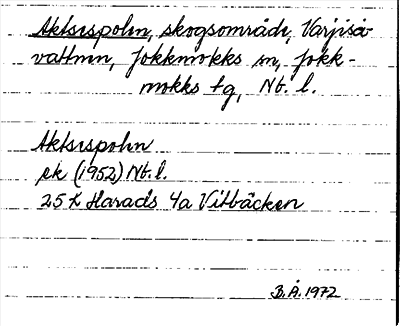 Aktsispolm, skogsområde, Varjiså-
vattnen, Jokkmokks sn, Jokk-
mokks tg, Nb. l.
Aktsispolm
ek (1952) Nb. l.
25 K Harads 4a Vitbäcken
B.Å. 1972